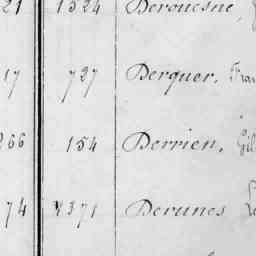 21 1524 Derouesne,
17 727 Derquer, Fran
266 154 Derrien, Gil
74 1371 Derunes Lo